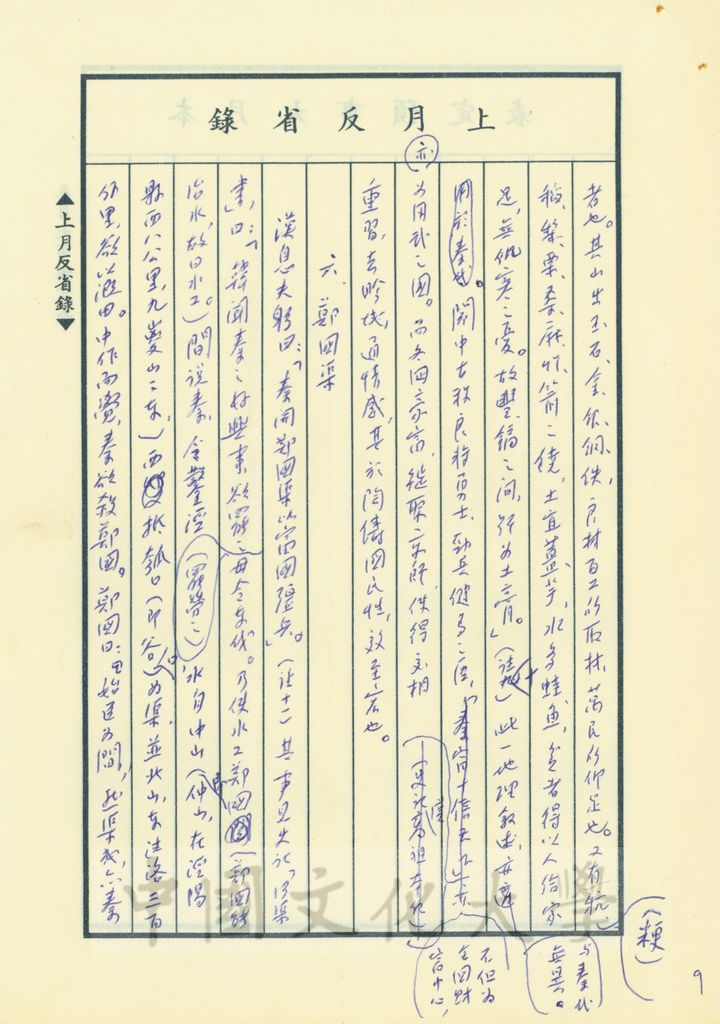 上月反省錄
者也。其山出玉石、金、銀、銅、鐵、良材、百工所取材、萬民所仰足也。又有秔
稻、黎、栗、桑、麻、竹、箭之饒,土宜薑芋,水多蛙魚,貧者得以人給家
足,無飢寒之憂。故豐鎬之間,號為土膏。」(註十)此一地理敘述,亦適
用於秦代。關中古秩良將勇士、勁兵健馬之區,「秦富十倍天下」
亦
為用武之國。而各國豪富,徙聚二京師,使得交相
重習,去畛域,通情感,其於陶鑄國民性,效至宏也。
六、鄭國渠
漢息夫躬曰:「秦開鄭國渠以富國彊兵。」(註十一)其事見史記「河渠
書」,曰:「韓聞秦之好興事,欲罷之毋令東伐。乃使水工鄭國(鄭國能
治水,故曰水工。)間說秦,令鑿涇水自中山(仲山,在涇陽
(罷勞之)
縣西八公里,九嵏山之東,)西抵瓠口(即谷口)為渠,並北山,東注洛三百
餘里,欲以溉田。中作而覺,秦欲殺鄭國。鄭國曰:「始臣為間,然渠成,亦秦
(粳)
與秦代
無異。
不但為
全國財
富中心,
(史記高祖本紀)
▲上月反省錄▼
9
中國文化大學